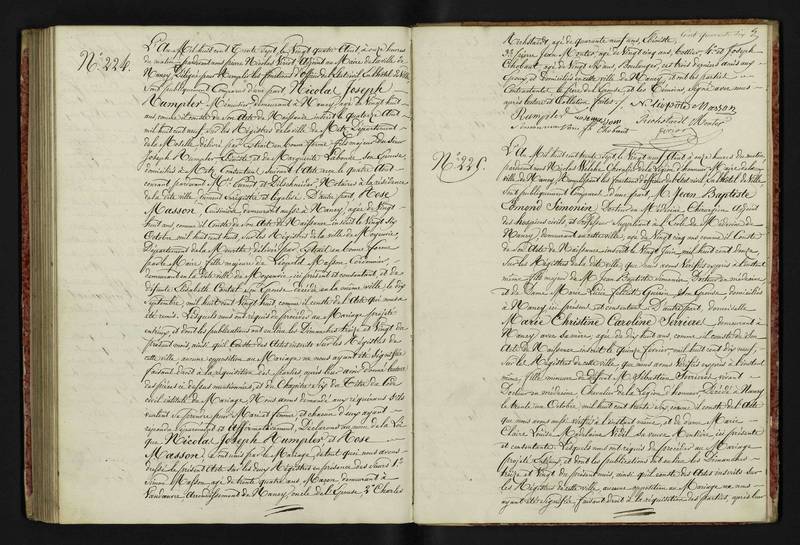 N.° 224.
L'An Mil huit cent trente sept, le Vingt quatre Août, à onze heures
du matin, pardevant nous Nicolas Adjoint au Maire de la ville de
Nancy, délégué pour Remplir les fonctions d'officier de l'état civil, à l'hôtel de Ville
sont publiquement Comparus d'une part Nicolas Joseph
Rampler Menuisier demeurant à Nancy, âgé de Vingt huit
ans, comme il conste de son Acte de Naissance inscrit le quatorze Août
mil huit cent neuf, sur les Registres de la ville de Metz Département
de la Moselle délivré par Extrait en bonne forme fils majeur de
Joseph Rampler et de Marguerite son Epouse
domiciliés à Metz Contentans suivant Acte reçu le quatre Août
courant pardevant Mes et Notaires à la résidence
de la dite ville, dument enregistré et légalisé. D'autre part Rose
Masson Cuisinière, demeurant aussi à Nancy, âgée de Vingt
huit ans comme il conste de son Acte de Naissance inscrit le Vingt six
Octobre mil huit cent huit, sur les Registres de la ville de
Département de la Meurthe délivré par Extrait en bonne forme
par le Maire fille majeure de Léopold Masson Cordonnier,
demeurant en la dite ville de ici présent et contentant, et de
défunte Elisabeth son Epouse décédée en la même ville, le dix
Septembre mil huit cent Vingt huit, comme il conste de l'Acte qui nous a
été remis. Lesquels nous ont requis de procéder au Mariage projetté
entr'eux, et dont les publications ont eu lieu les Dimanches treize et Vingt du
présent mois, ainsi qu'il Conste des Actes inscrits sur les Registres de
cette ville, aucune opposition au Mariage ne nous ayant été signifiée
faisant droit à la réquisition des parties après leur avoir donné lecture
des pièces ci dessus mentionnées, et du Chapitre six du Titre du Code
civil intitulé du Mariage, Nous avons demandé aux requérans s'ils
veulent se prendre pour Mari et femme, et chacun d'eux ayant
répondu séparément et Affirmativement, Déclarons au nom de la Loi
que Nicolas Joseph Rampler et Rose
Masson, sont unis par le Mariage, de tout quoi nous avons
dressé le présent Acte sur les deux Registres en présence des Sieurs 1.°
Simon Masson, âgé de trente quatre ans Maçon demeurant à
Vandœuvre Arrondissement de Nancy, oncle de la Epouse 2.° Charles
Richstaedt, âgé de quarante neuf ans, Ebéniste,
3.° Pierre Jean Montor, âgé de Vingt cinq ans, Sellier, 4.° et Joseph
Chobaut, âgé de Vingt six ans, Boulanger, ces trois derniers amis aux
Epoux et domiciliés en cette ville de Nancy, et ont les parties
Contractantes, le père de l'Epouse, et les Témoins, signé avec nous
après lecture et Collation faites.
Rampler Rose masson Masson
Simon masson Richstaedt Montor
J. Chobaut
N.° 225.
L'An Mil huit cent trente sept, le Vingt neuf Août à onze heures du matin,
pardevant nous Nicolas Welche, Chevalier de la Légion d'honneur, Maire de la
ville de Nancy, Remplissant les fonctions d'officier de l'état civil, à l'hôtel de Ville
sont publiquement Comparus d'une part M. Jean Baptiste
Edmond Simonin Docteur en Médecine Chirurgien Adjoint
des hospices civils et Professeur Suppléant à l'Ecole de Médecine de
Nancy, demeurant en cette ville, âgé de Vingt cinq ans comme il Conste
de son Acte de Naissance inscrit le Vingt Juin, mil huit cent douze
sur les Registres de la dite ville, que nous avons Vérifié séparé à l'instant
même, fils majeur de M. Jean Baptiste Simonin Docteur en médecine
et de Dame Marie Lucie Félicité son Epouse, domiciliés
à Nancy, ici présens, et consentans. D'autre part, demoiselle
Marie Christine Caroline Serrières, demeurant à
Nancy avec sa mère, âgée de dix huit ans, comme il conste de son
Acte de Naissance inscrit le quinze février, mil huit cent dix neuf,
sur les Registres de cette ville, que nous avons Vérifié séparé à l'instant
même, fille mineure de défunt M. Sébastien Serrières vivant
Docteur en médecine Chevalier de la Légion d'honneur, Décédé à Nancy
le trente un Octobre, mil huit cent trente six, comme il conste de l'Acte
que nous avons aussi Vérifié à l'instant même, et de dame Marie
Claire Louise Magdelaine Noël sa veuve Rentière ici présente
et contentante. Lesquels nous ont requis de procéder au Mariage
projetté entr'eux, et dont les publications ont eu lieu les Dimanches
treize et Vingt du présent mois, ainsi qu'il conste des Actes inscrits sur
les Registres de cette ville, aucune opposition au Mariage ne nous
ayant été signifiée, faisant droit à la réquisition des parties, après leur